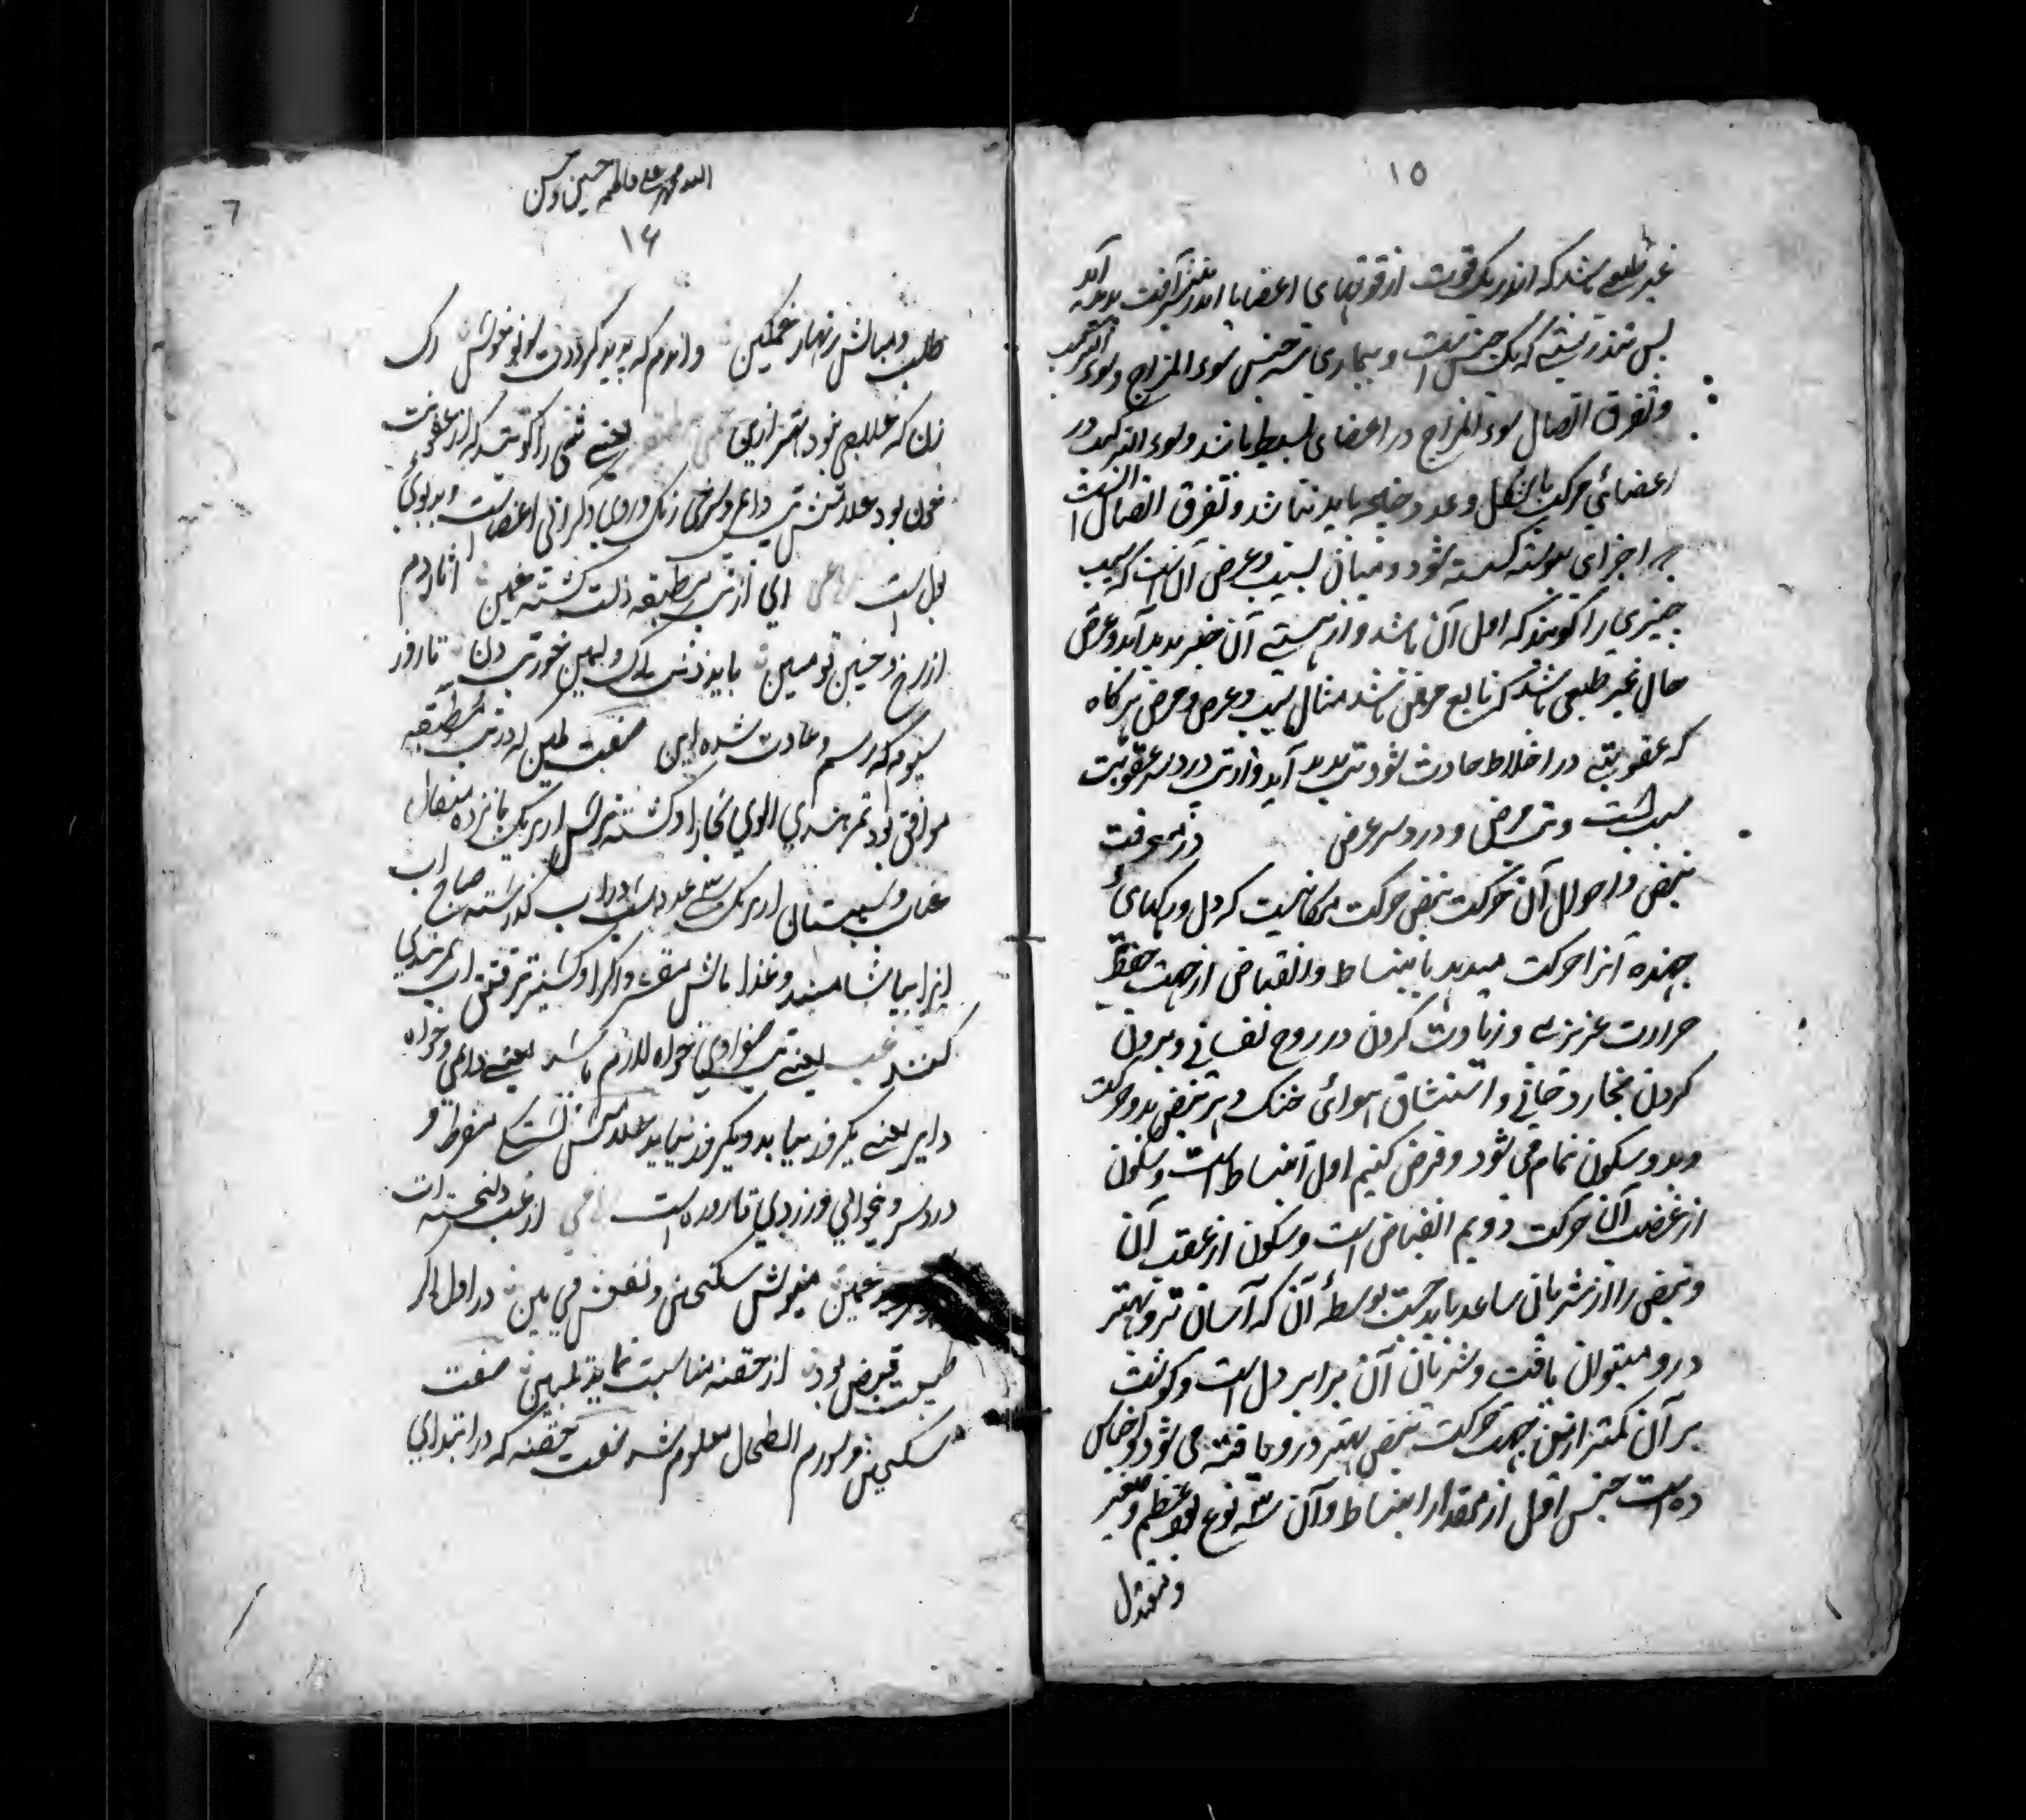 ١٥
غیر طبیعی باشد که اندر یک قوت از قوتهای اعضا یا اندر بیشتر آفت پدید آید
پس تندرستی که یک جنس است و بیماری سه جنس سوء المزاج و سوء الترکیب
و تفرق اتصال سوء المزاج در اعضای بسیط باشد و سوء الترکیب در
اعضائی مرکب باشکل و عدد و چنانچه باید نباشد و تفرق اتصال آنست
که اجزای پیوسته کسسته شود و میان سبب و عرض آن است که سبب
چیزی را کویند که اول آن باشد و از هستی آن چیز پدید آید و عرض
حال غیر طبیعی باشد که تابع مرض باشد مثال سبب و عرض و مرض هر کاه
که عفونتی در اخلاط حادث شود تب پدید آید و از تب درد سر عفونت
سبب است و تب مرض و درد سر عرض در معرفت
نبض و احوال آن حرکت نبض حرکت مکانیست که دل و رکهای
جهنده آنرا حرکت میدهد بانبساط و انقباض از جهت حفظ
حرارت غریزی و زیادت کردن در روح نفسانی و بیرون
کردن بخار دخانی و استنشاق هوائی خنک و هر نبض بدو حرکت
و بدو سکون تمام می شود و فرض کنیم اول انبساط است و سکون
از عقب آن حرکت دویم انقباض است و سکون از عقب آن
و نبض را از شریان ساعد باید جست بوسطهٔ آن که آسان تر و بهتر
درو میتوان یافت و شریان آن برابر دل است و کوشت
بر آن کمتر ازین جهت حرکت نبض بهتر درو یافته می شود و اجناس
ده است جنس اول از مقدار انبساط و آن سه نوع بود عظیم و صغیر
و معتدل
الله محمد علی فاطمه حسین و حسن
١٤
٦
طلب و مبالش زنهار غمکین و اندوم که پدید کردد خونش رک
زن که علاجی نبود بهتر ازین یعنی تبی را کویند که از عفونت
خون بود علامتش تب دائم و سرخی رنک و روی و کرانی اعضاست و بدبوئی
بول است ای از تب مطبقه دلت کشته غمین آثار دم
از رخ و جبین تو مبین باید زدنت رک و همین خوردن تا روز
سیوم که رسم و عادت شده این صفت ملین که در تب مطبقه
موافق بود تمر هندی الوی بخارا و کشنیز خشک از هریک پانزده مثقال
عناب و سپستان از هریک سی عدد بشب در آب کذاشته صاف آب
آنرا بیاشامند و غذا ماش مقشر و اکرا و کشنیز تر آب تمر هندی
کنند غب یعنی تب صفراوی خواه لازم باشد یعنی دائمی و خواه
دایر یعنی یکروز بیاید و یکروز نیاید علامتش تشنکی مفرط و
درد سر و بیخوابی و زردی قاروره است از غب دلخسته ات
غمین مینوش سکنجبین و نفعش می بین در اول اکر
طبیعت قبض بود از حقنه مناسبت نماید تلیین صفت
سکنجبین در ورم الطحال معلوم شد صفت حقنه که در ابتدای